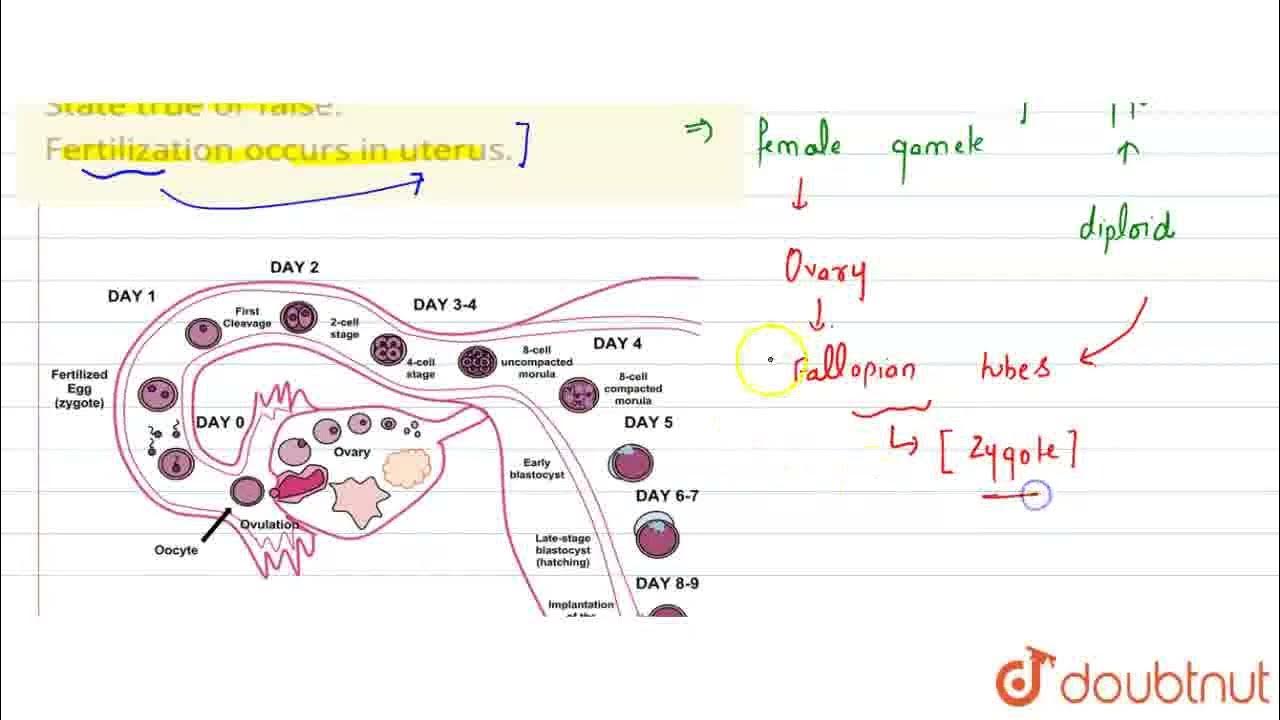 State true or false.
Fertilization occurs in uterus.]
⇒ female gamete
↑
↓
diploid
Ovary
↓
Fallopian tubes
↳ [Zygote]
DAY 2
DAY 1
DAY 3-4
First
Cleavage
2-cell
stage
4-cell
stage
8-cell
uncompacted
morula
DAY 4
8-cell
compacted
morula
Fertilized
Egg
(zygote)
DAY 0
Ovary
DAY 5
Early
blastocyst
DAY 6-7
Ovulation
Oocyte
Late-stage
blastocyst
(hatching)
DAY 8-9
Implantation
of the
doubtnut